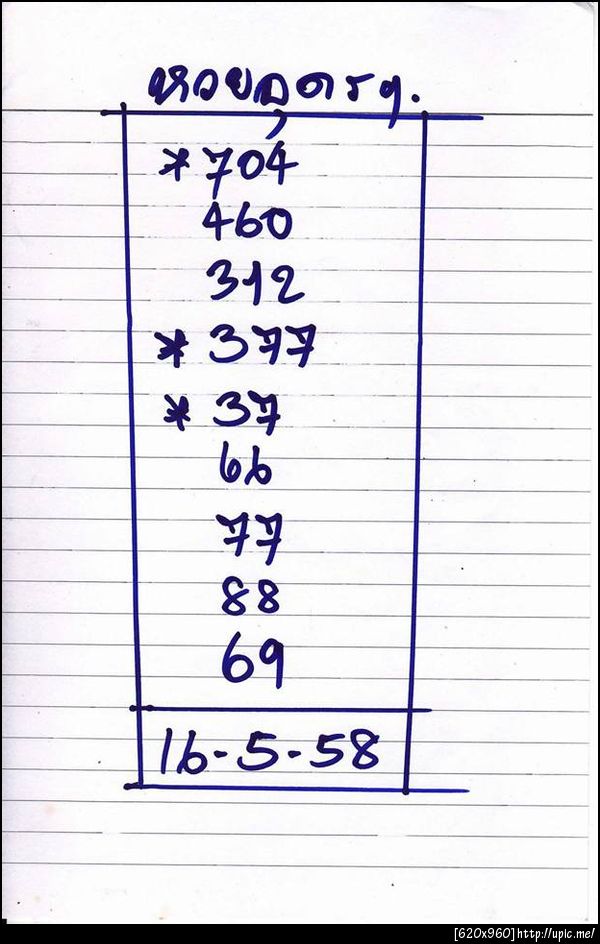 หวยอุดรฯ.
*704
460
312
* 377
* 37
66
77
88
69
16-5-58
[620x960]http://upic.me/